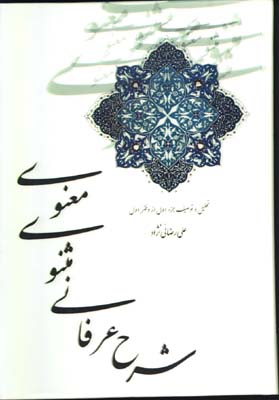 تحلیل و توصیف جزء اول از دفتر اول
علی رضائی نژاد
شرح عرفانی
مثنوی
معنوی